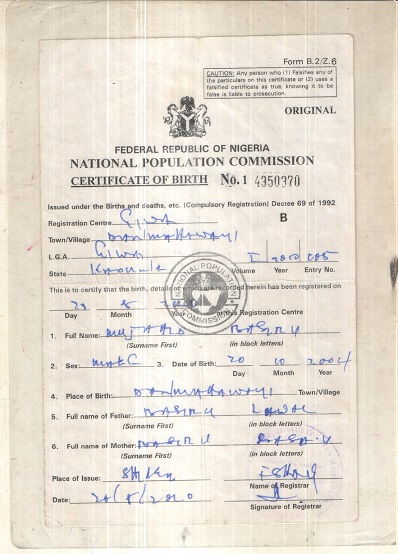 Form B.2/Z.6
CAUTION: Any person who (1) Falsifies any of
the particulars on this certificate or (2) uses a
falsified certificate as true, knowing it to be
false is liable to prosecution.
ORIGINAL
FEDERAL REPUBLIC OF NIGERIA
NATIONAL POPULATION COMMISSION
CERTIFICATE OF BIRTH No. 1 4350370
Issued under the Births and deaths, etc. (Compulsory Registration) Decree 69 of 1992
Registration Centre GIWA B
Town/Village
L.G.A. GIWA I
State Volume Year Entry No.
NATIONAL POPULATION COMMISSION
This is to certify that the birth, details of which are recorded herein has been registered on
Day Month Year At this Registration Centre
1. Full Name: BASIRU
(Surname First) (in block letters)
2. Sex: MALE 3. Date of Birth: 20 10 2004
Day Month Year
4. Place of Birth: Town/Village
5. Full name of Father: BASIRU LAWAL
(Surname First) (in block letters)
6. Full name of Mother: BASIRU
(Surname First) (in block letters)
Place of Issue: SHIKA
Name of Registrar
Date: 20/8/2010
Signature of Registrar